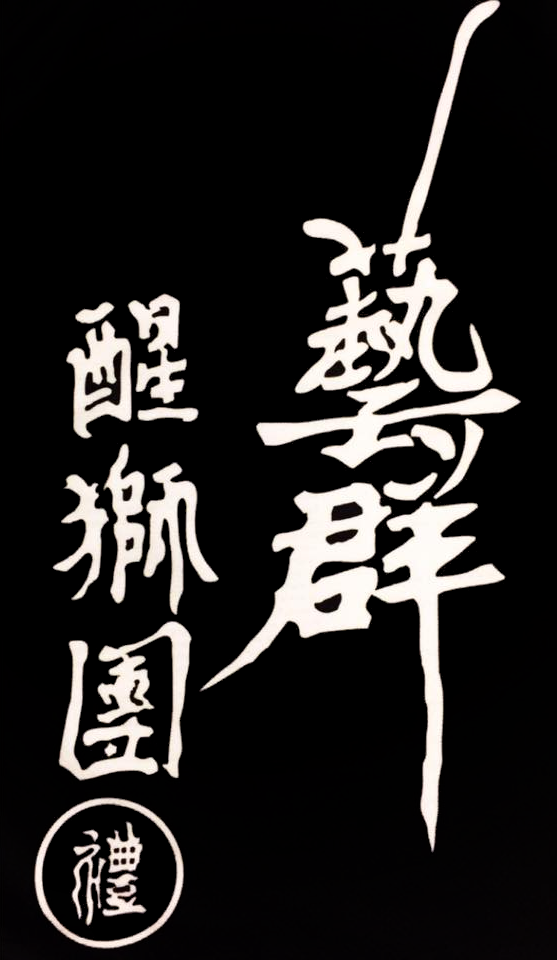 藝群
醒獅團
禮